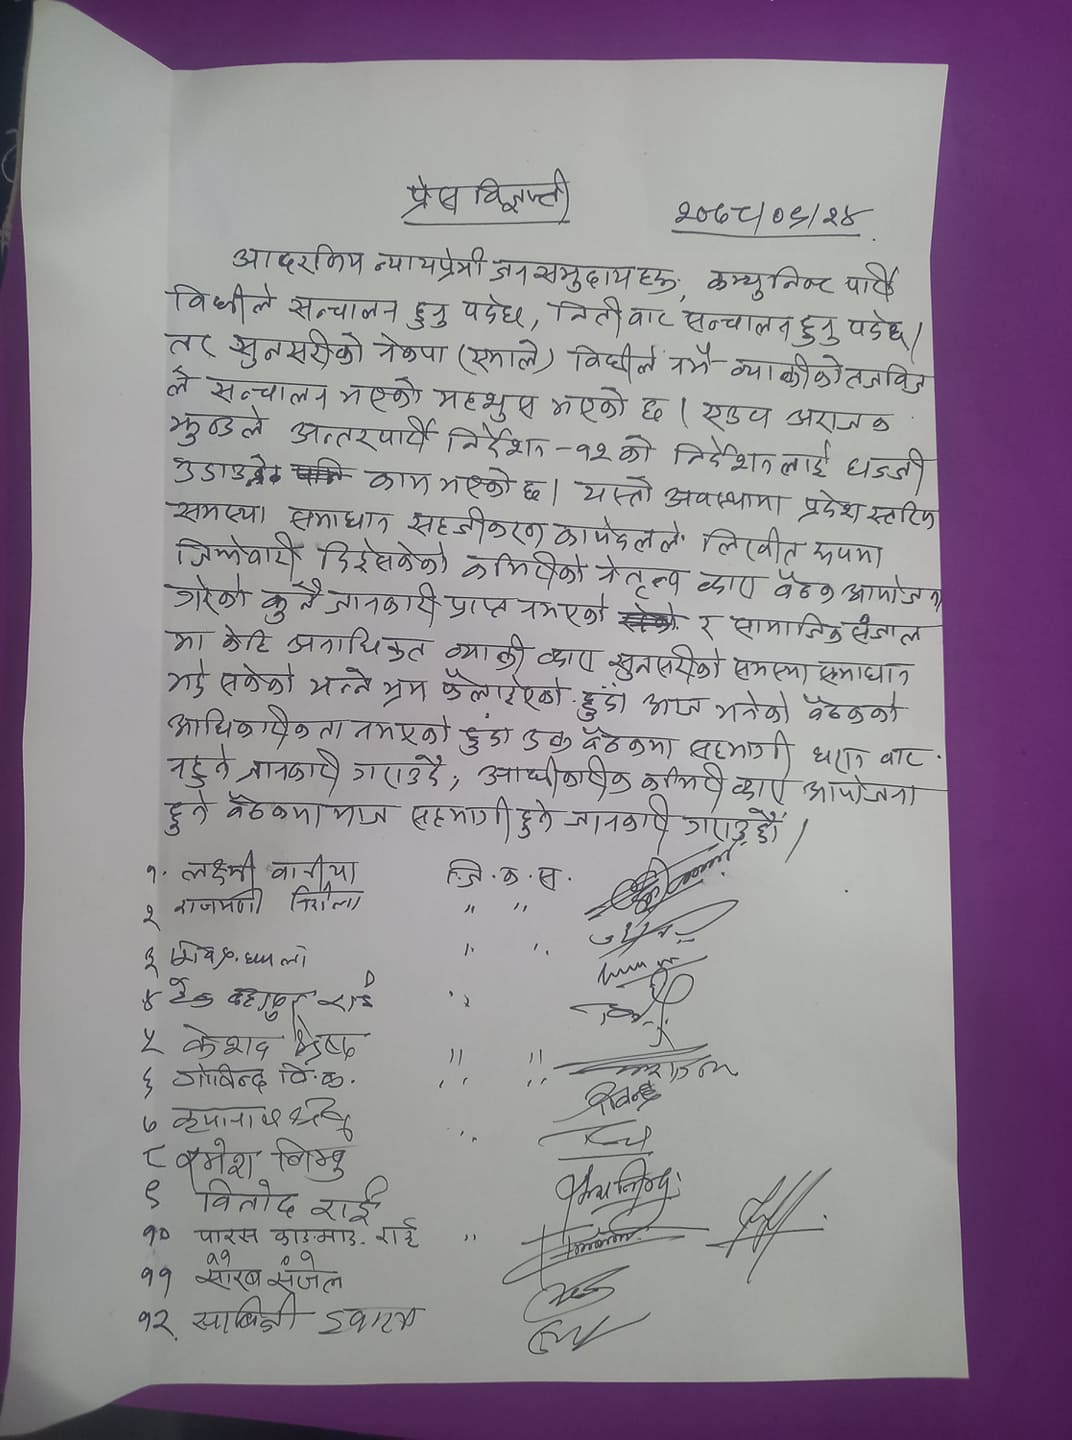 प्रेस विज्ञप्ती
२०७८/०६/२४
आदरणिय न्यायप्रेमी जनसमुदायहरू, कम्युनिष्ट पार्टी
विधीले सन्चालन हुनु पर्दछ, नितीबाट सन्चालन हुनु पर्दछ।
तर सुनसरीको नेकपा (एमाले) विधीले नभै व्याक्तीको तजविज
ले सन्चालन भएको महशुस भएको छ। अराजक
झुण्डले अन्तरपार्टी निर्देशन-१२ को निर्देशनलाई धज्जी
उडाउने काम भएको छ। यस्तो अवस्थामा प्रदेश स्तरिय
समस्या समाधान सहजीकरण कार्यदलले लिखीत रूपमा
जिम्मेवारी दिईसकेको कमिटीको नेतृत्व द्वारा बैठक आयोजना
गरेको कुनै जानकारी प्राप्त नभएको र सामाजिक संजाल
मा केहि अनाधिकृत व्याक्ती द्वारा सुनसरीको समस्या समाधान
भई सकेको भन्ने भ्रम फैलाईएको हुंदा आज भनेको बैठकको
आधिकारीकता नभएको हुंदा उक्त बैठकमा सहभागी धरान बाट
नहुने जानकारी गराउदै, आधीकारीक कमिटी द्वारा आयोजना
हुने बैठकमा मात्र सहभागी हुने जानकारी गराउछौं।
१. लक्ष्मी वानीया जि.क.स.
२ राजमणी निरौला " "
३ " "
४ टेक बहादुर राई "
५ केशव श्रेष्ठ " "
६ गोविन्द वि.क. " "
७ "
८ रमेश लिम्बु
९ विनोद राई
१० पारस राई "
११ सौरब संजेल
१२. सावित्री